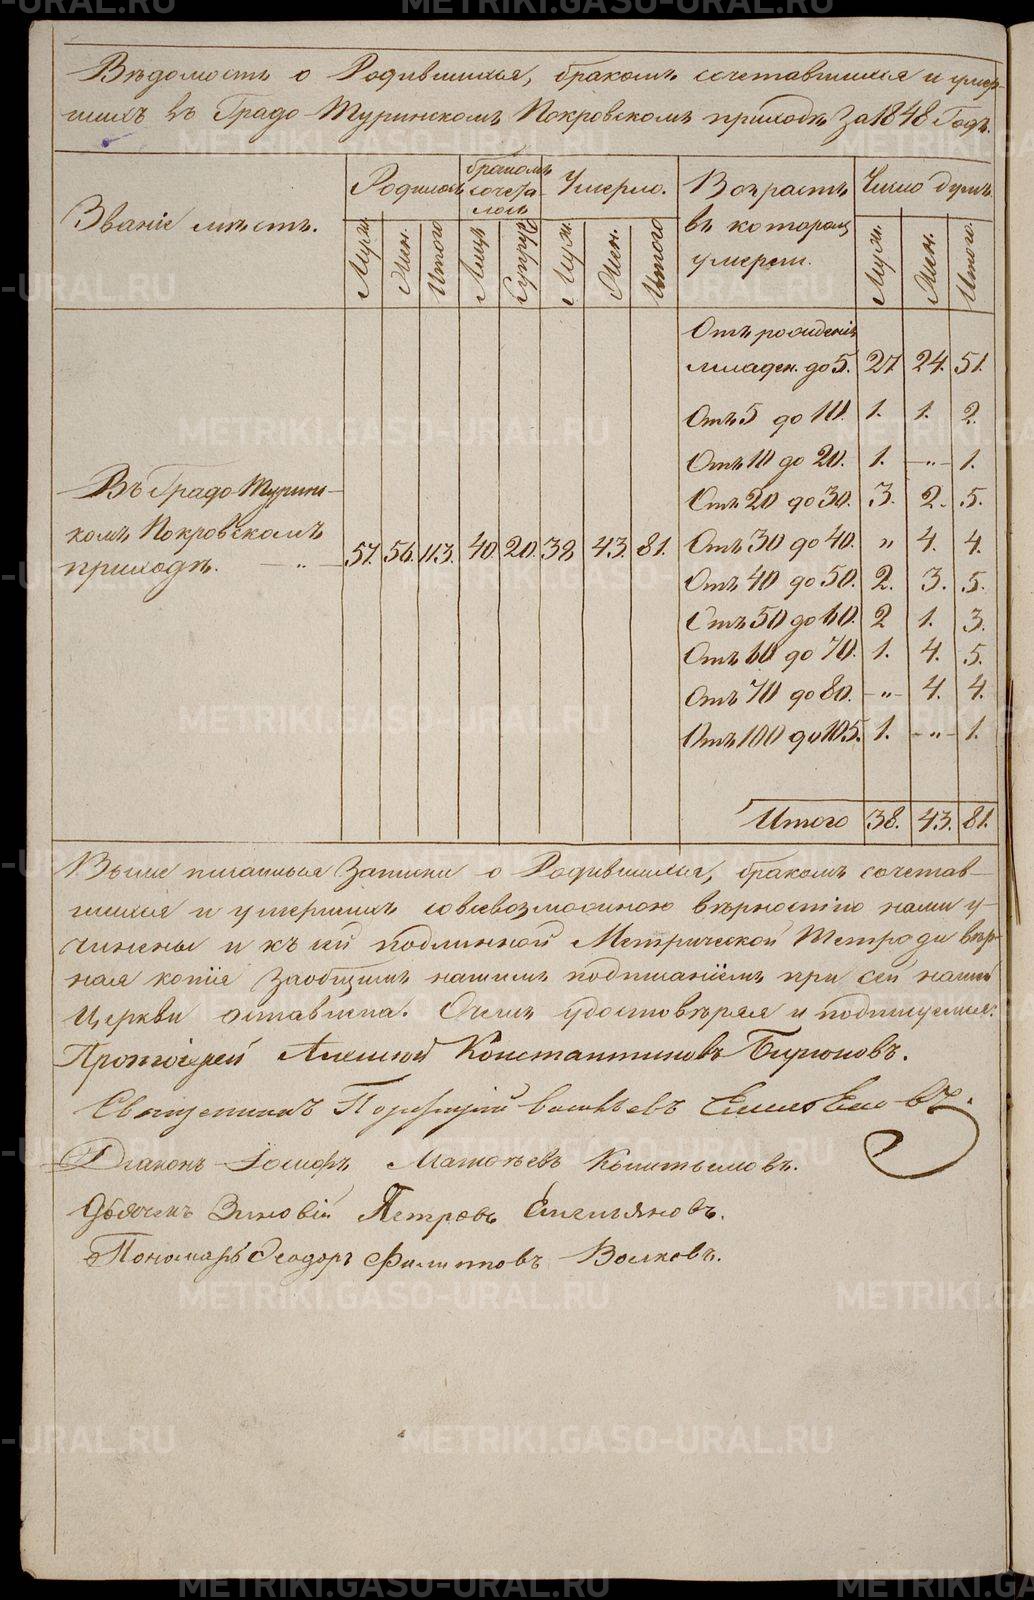 Вѣдомость о Родившихся, бракомъ сочетавшихся и умер-
шихъ въ Градо-Туринскомъ Покровскомъ приходѣ за 1848 Годъ.
Званіе мѣстъ.
Родилось
бракомъ
сочета-
лось
Умерло.
Возрастъ
въ которомъ
умерли.
Число душъ.
Муж. Жен. Итого Лицъ Супруж. Муж. Жен. Итого Муж. Жен. Итого
Отъ рожденія
младен. до 5. 27. 24. 51.
Отъ 5 до 10. 1. 1. 2.
Отъ 10 до 20. 1. -„- 1.
Отъ 20 до 30. 3. 2. 5.
Въ Градо Турин-
комъ Покровскомъ
приходѣ. -„- 57. 56. 113. 40. 20. 38 43. 81.
Отъ 30 до 40. „ 4. 4.
Отъ 40 до 50. 2. 3. 5.
Отъ 50 до 60. 2 1. 3.
Отъ 60 до 70. 1. 4. 5.
Отъ 70 до 80. -„- 4. 4.
Отъ 100 до 105. 1. -„- 1.
Итого 38. 43. 81.
Выше писанныя Записки о Родившихся, бракомъ сочетав-
шихся и умершихъ со всевозможною вѣрностію нами у-
чинены и къ сей подлинной Метрической Тетради вѣр-
ная копія за общимъ нашимъ подписаніемъ при сей нашей
Церкви оставлена. О чемъ удостовѣряя и подписуемся:
Протоіерей Алексѣй Константиновъ Бирюковъ.
Священникъ Порфирій Васильевъ
Діаконъ Іосифъ Матѳѣевъ
Дьячекъ Зиновій Петровъ
Пономарь Ѳеодоръ Филипповъ Волковъ.
METRIKI.GASO-URAL.RU